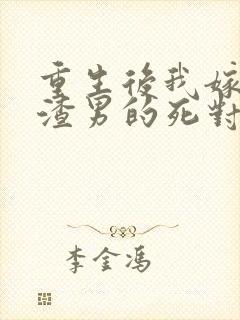 重生後我嫁
渣男的死對
李金馮